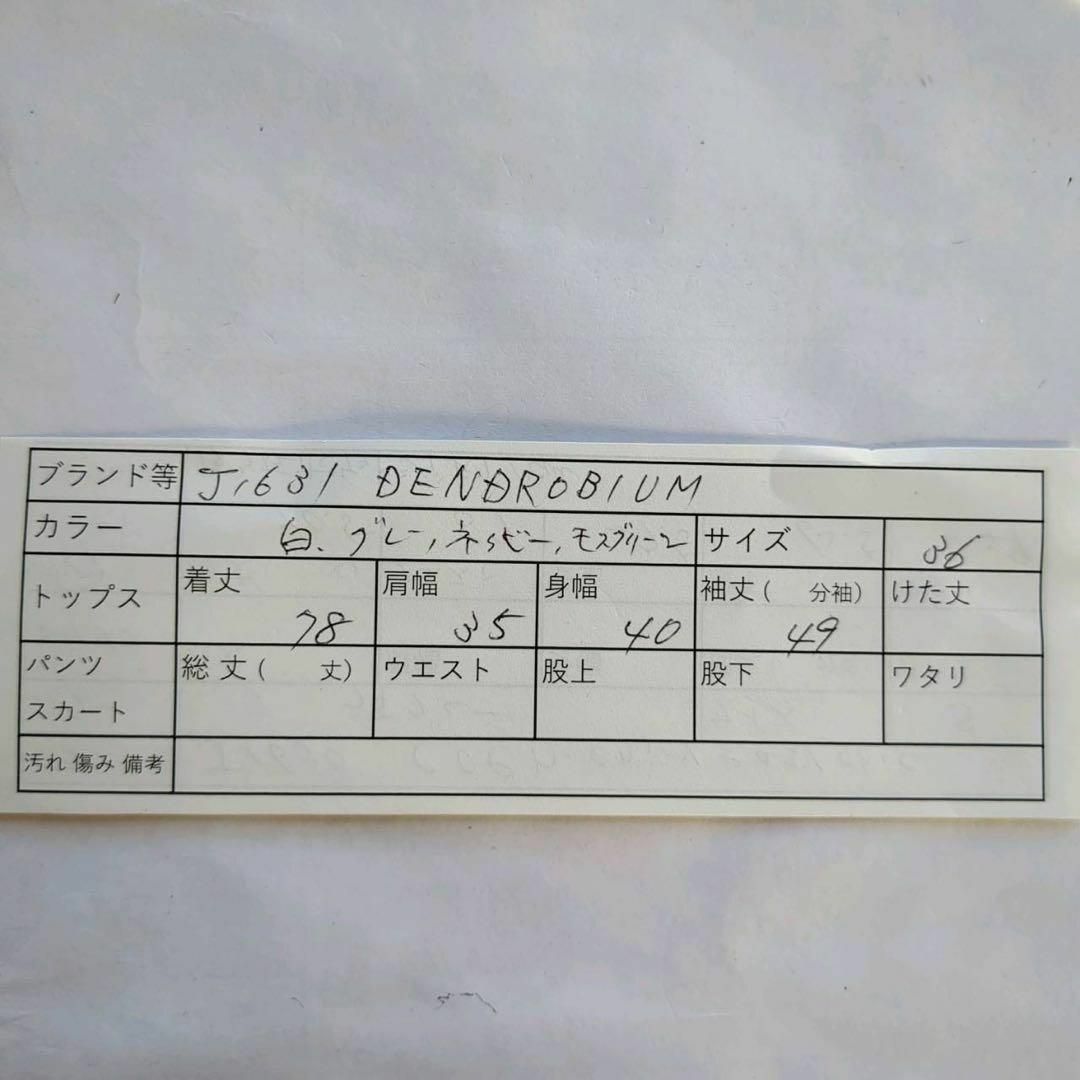 ブランド等 J,631 DENDROBIUM
カラー 白、グレー,ネイビー,モスグリーン サイズ 36
トップス 着丈 肩幅 身幅 袖丈( 分袖) けた丈
78 35 40 49
パンツ 総丈( 丈) ウエスト 股上 股下 ワタリ
スカート
汚れ 傷み 備考